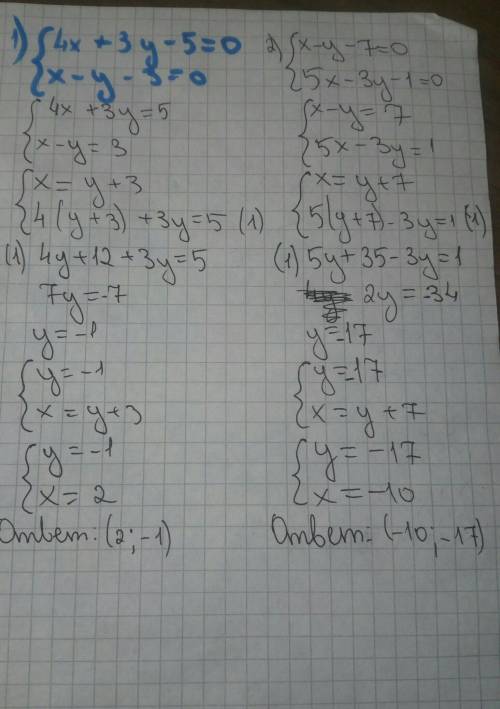 1) {4x + 3y - 5 = 0
{x - y - 3 = 0
{4x + 3y = 5
{x - y = 3
{x = y + 3
{4(y + 3) + 3y = 5 (1)
(1) 4y + 12 + 3y = 5
7y = -7
y = -1
{y = -1
{x = y + 3
{y = -1
{x = 2
Ответ: (2; -1)
2) {x - y - 7 = 0
{5x - 3y - 1 = 0
{x - y = 7
{5x - 3y = 1
{x = y + 7
{5(y + 7) - 3y = 1 (1)
(1) 5y + 35 - 3y = 1
2y = -34
y = -17
{y = -17
{x = y + 7
{y = -17
{x = -10
Ответ: (-10; -17)